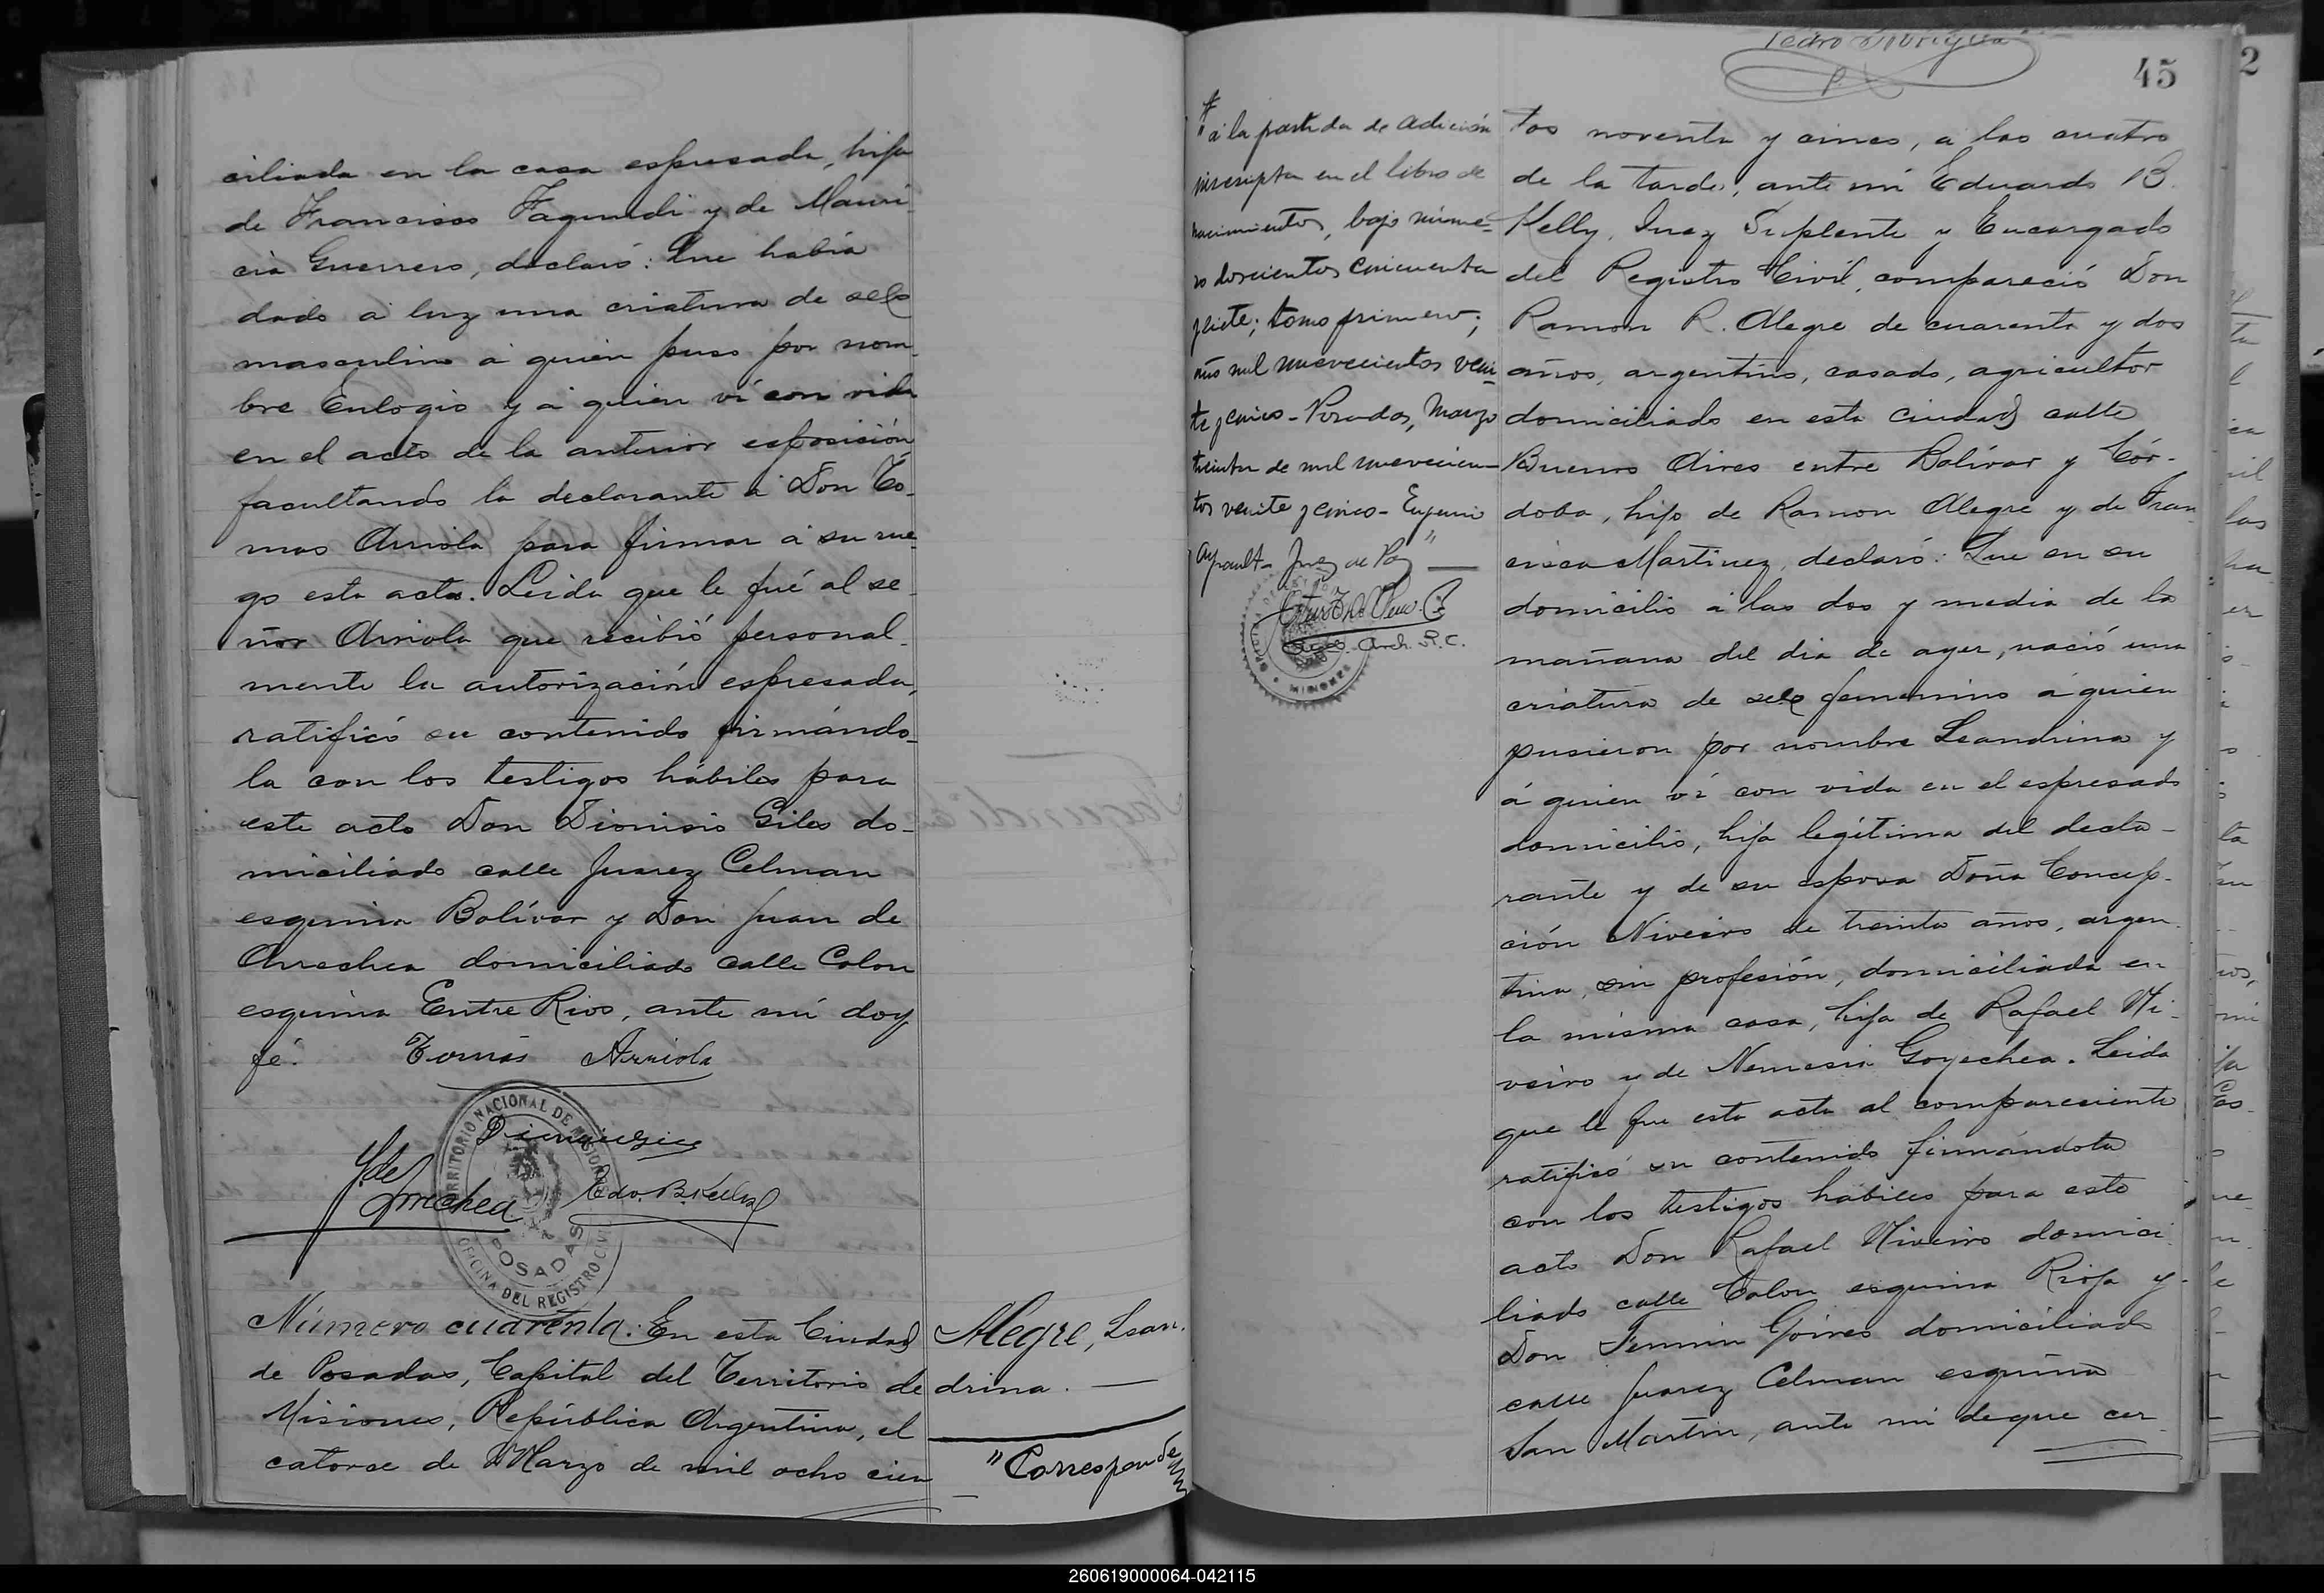 ciliada en la casa espresada, hija
de Francisco Fagundi y de Mauri-
cia Guerrero, declaró: Que había
dado á luz una criatura de sexo
masculino á quien puso por nom-
bre Eulogio y á quien ví con vida
en el acto de la anterior esposición
facultando la declarante á Don To-
mas Arriola para firmar á su rue-
go esta acta. Leida que le fué al se-
ñor Arriola que recibió personal-
mente la autorización espresada,
ratificó su contenido firmándo-
la con los testigos hábiles para
este acto Don Dionisio Giles do-
miciliado calle Juarez Celman
esquina Bolívar y Don Juan de
Arrechea domiciliado calle Colon
esquina Entre Rios, ante mí doy
fé. Tomás Arriola
J. de Arrechea
Edo. B. Kelly
TERRITORIO NACIONAL DE MISIONES
POSADAS
OFICINA DEL REGISTRO CIVIL
Número cuarenta: En esta Ciudad
de Posadas, Capital del Territorio de
Misiones, República Argentina, el
catorce de Marzo de mil ocho cien
Alegre, Lean-
drina. —
"Corresponde
45
2
* "á la partida de adición
inscripta en el libro de
nacimientos, bajo núme-
ro doscientos cincuenta
y siete; tomo primero;
año mil novecientos vein-
te y cinco - Posadas, Marzo
treinta de mil novecien-
tos veinte y cinco - Eugenio
Ayrault - Juez de Paz" —
Arch. R. C.
tos noventa y cinco, á las cuatro
de la tarde, ante mí Eduardo B.
Kelly, Juez Suplente y Encargado
del Registro Civil, compareció Don
Ramon R. Alegre de cuarenta y dos
años, argentino, casado, agricultor
domiciliado en esta ciudad calle
Buenos Aires entre Bolívar y Cór-
doba, hijo de Ramon Alegre y de Fran-
cisca Martinez, declaró: Que en su
domicilio á las dos y media de la
mañana del dia de ayer, nació una
criatura de sexo femenino á quien
pusieron por nombre Leandrina y
á quien ví con vida en el espresado
domicilio, hija legítima del decla-
rante y de su esposa Doña Concep-
ción Niveiro de treinta años, argen-
tina, sin profesión, domiciliada en
la misma casa, hija de Rafael Ni-
veiro y de Nemesia Goyechea. Leida
que le fue esta acta al compareciente
ratificó su contenido firmándola
con los testigos hábiles para este
acto Don Rafael Niveiro domici-
liado calle Colon esquina Rioja y
Don Fermin Goires domiciliado
calle Juarez Celman esquina
San Martin, ante mi de que cer-
260619000064-042115